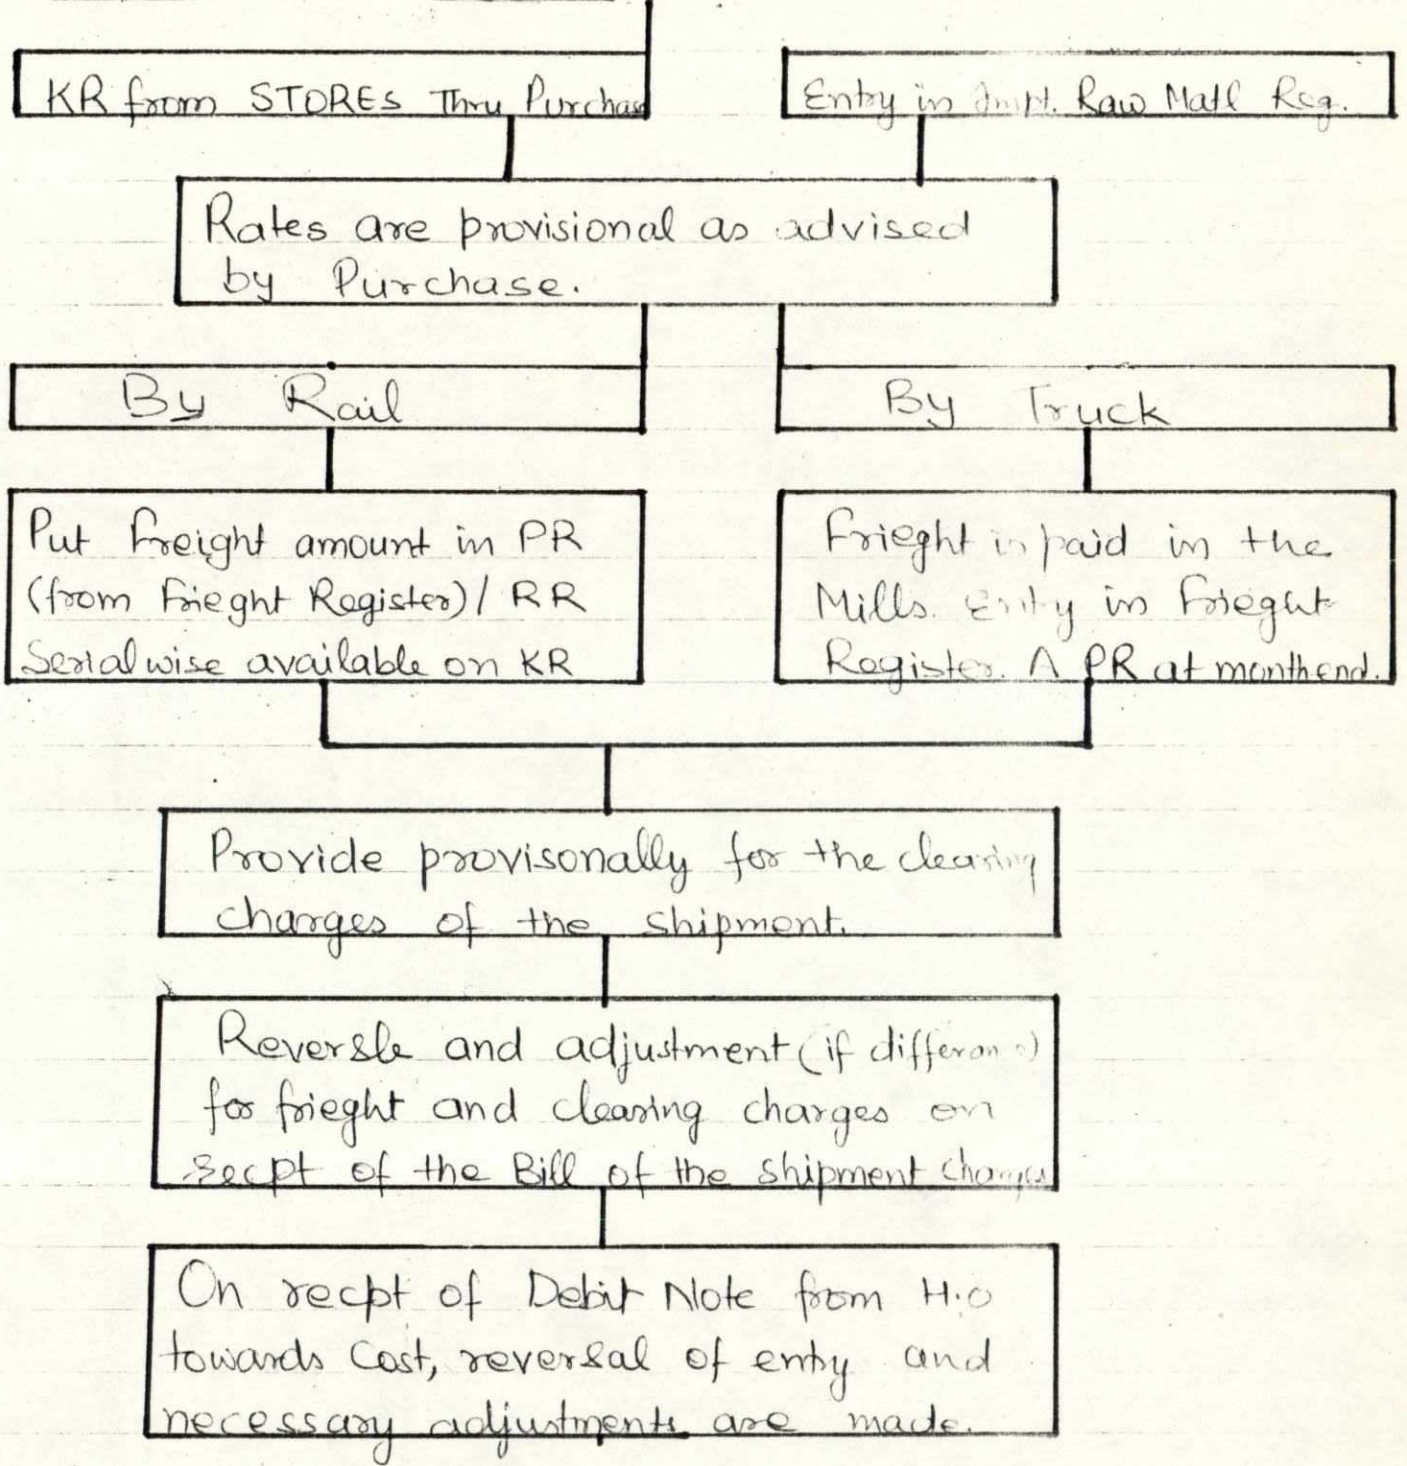 KR from STORES Thru Purchase
Entry in Impt. Raw Matl Reg.
Rates are provisional as advised
by Purchase.
By Rail
By Truck
Put freight amount in PR
(from Frieght Register) / RR
Serialwise available on KR
Frieght is paid in the
Mills. Entry in Frieght
Register. A PR at monthend.
Provide provisonally for the clearing
charges of the shipment.
Reversle and adjustment (if
for frieght and clearing charges on
recpt of the Bill of the shipment charges
On recpt of Debit Note from H.O
towards Cost, reversal of entry and
necessary adjustments are made.